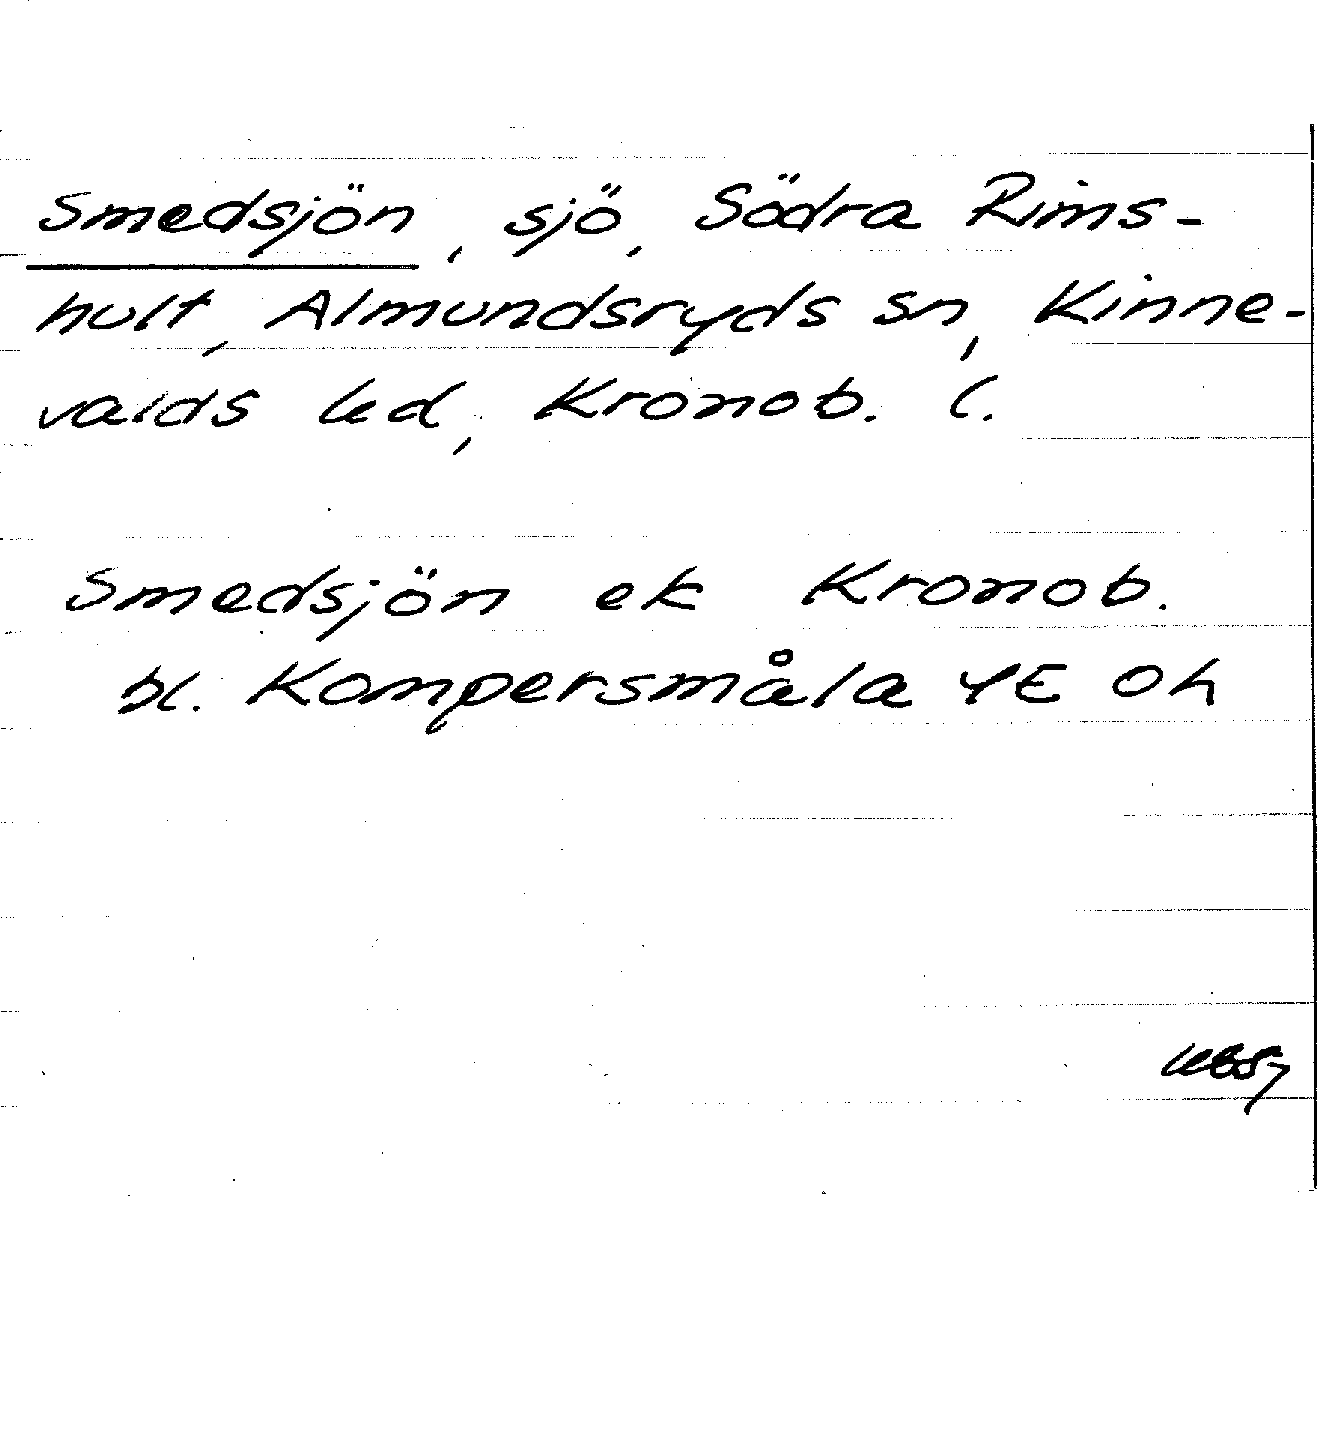 Smedsjön, sjö, Södra Rims-
hult, Almundsryds sn, Kinne-
valds hd, Kronob. l.
Smedsjön ek Kronob.
bl. Kompersmåla 4E 0h